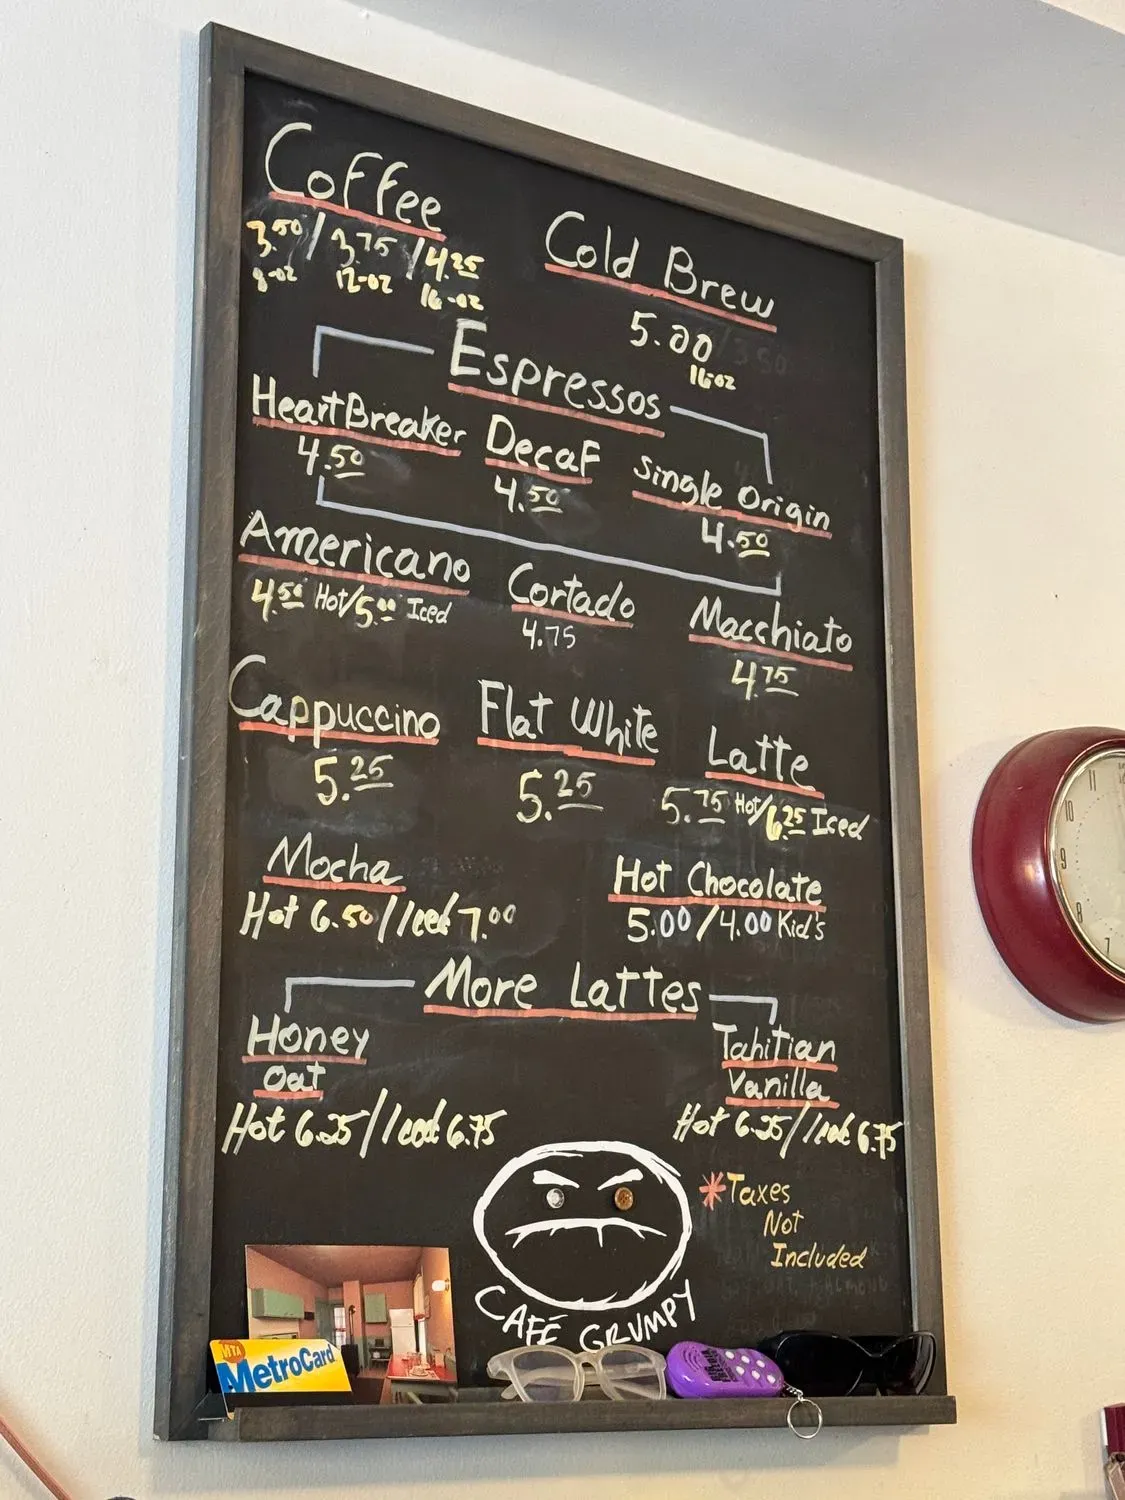 Coffee
3.50 / 3.75 / 4.25
8-oz 12-oz 16-oz
Cold Brew
5.00
16-oz
Espressos
HeartBreaker
4.50
Decaf
4.50
Single Origin
4.50
Americano
4.50 Hot/5.00 Iced
Cortado
4.75
Macchiato
4.75
Cappuccino
5.25
Flat White
5.25
Latte
5.75 Hot/6.25 Iced
Mocha
Hot 6.50/Iced 7.00
Hot Chocolate
5.00/4.00 Kid's
More Lattes
Honey
Oat
Hot 6.25/Iced 6.75
Tahitian
Vanilla
Hot 6.25/Iced 6.75
*Taxes
Not
Included
CAFÉ GRUMPY
MTA
MetroCard
11
10
9
8
7